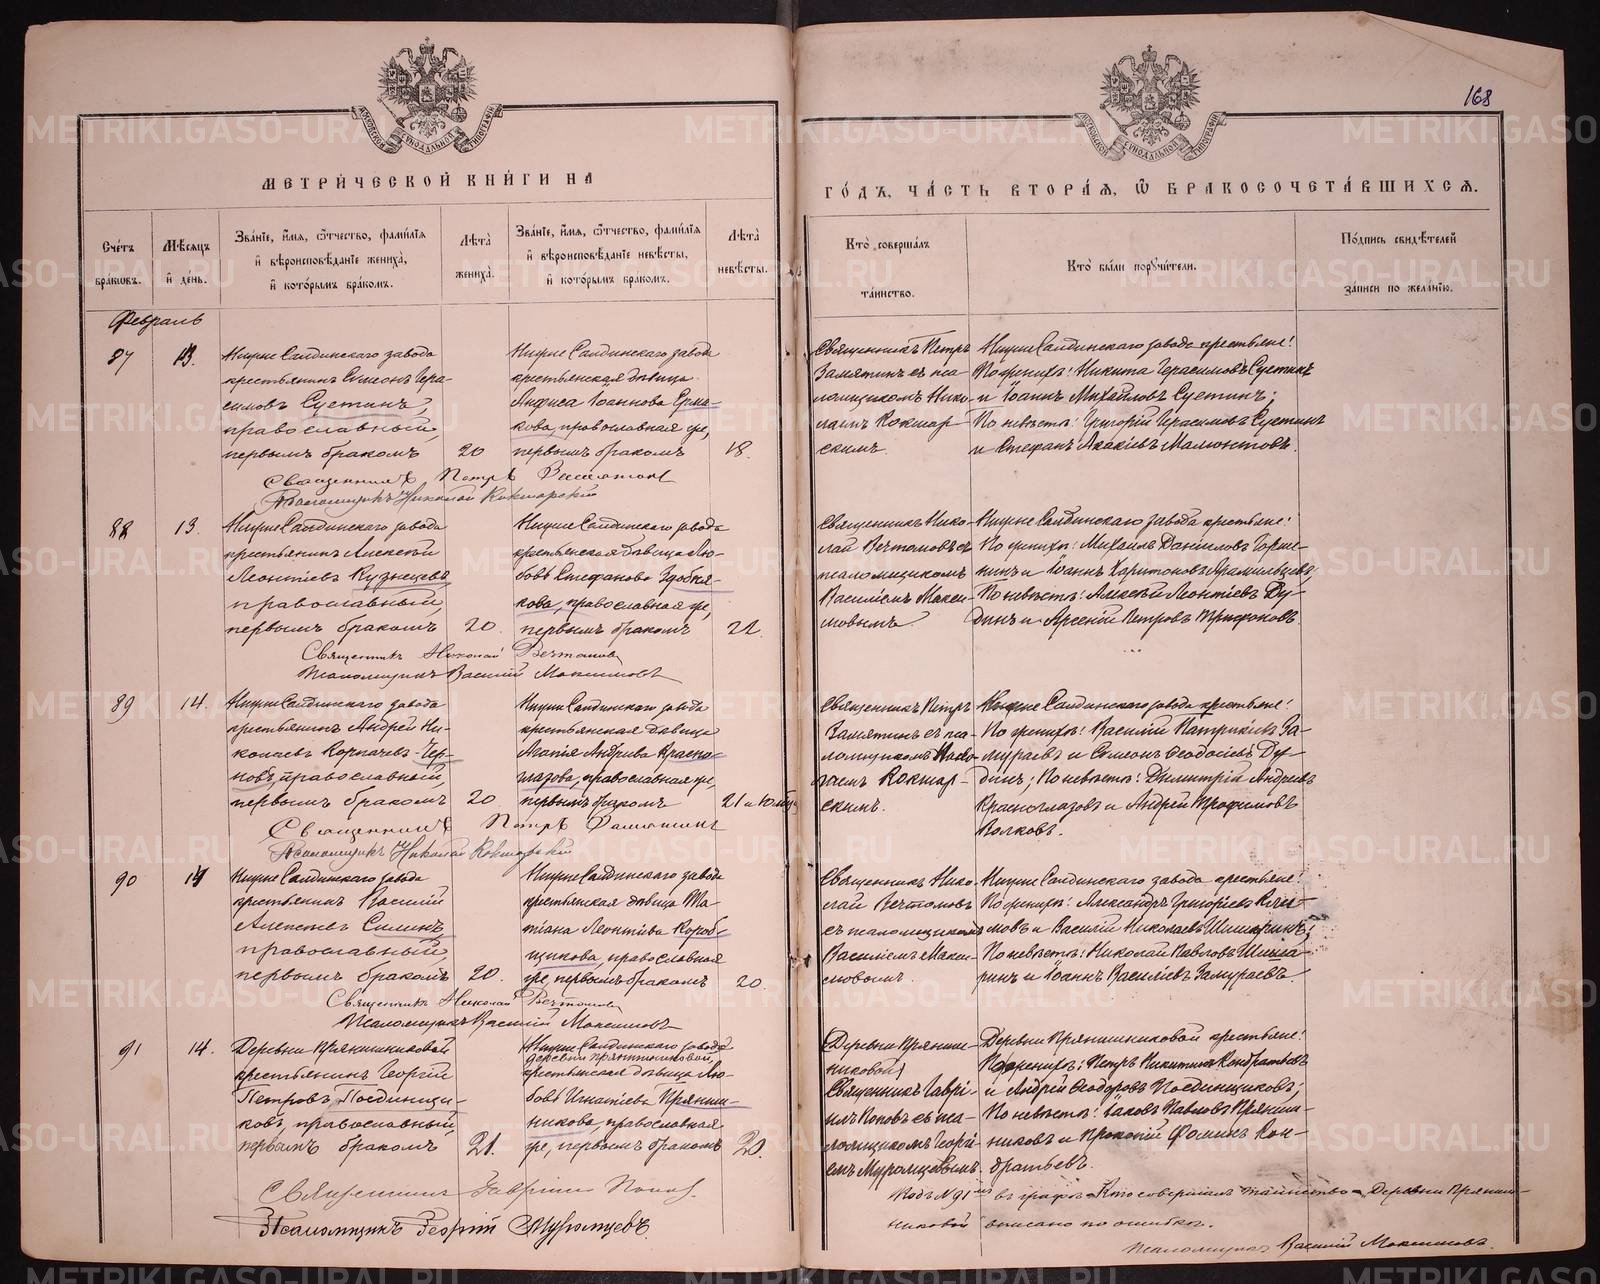 168
МЕТРИ́ЧЕСКОЙ КНИ́ГИ НА
ГО́ДЪ, ЧА́СТЬ ВТОРА́Я, Ѿ БРАКОСОЧЕТА́ВШИХСЯ.
Сче́тъ бра́ковъ.
Мѣ́сяцъ и҆ де́нь.
Зва́нїе, и҆́мя, ѻ҆́тчество, фами́лїя
и҆ вѣроисповѣ́данїе жениха̀,
и҆ кото́рымъ бра́комъ.
Лѣ́та̀ жениха̀.
Зва́нїе, и҆́мя, ѻ҆́тчество, фами́лїя
и҆ вѣроисповѣ́данїе невѣ́сты,
и҆ кото́рымъ бра́комъ.
Лѣ́та̀ невѣ́сты.
Кто̀ соверша́лъ
та́инство.
Кто̀ бы́ли порꙋчи́тели.
По́дпись свидѣ́телей
за́писи по жела́нїю.
Февраль
87
13.
Нижне Салдинскаго завода
крестьянинъ Симеонъ Гера-
симовъ Суетинъ,
православный,
первымъ бракомъ
20
Нижне Салдинскаго завода
крестьянская дѣвица
Анфиса Іоаннова Ерма-
кова, православная же,
первымъ бракомъ
18.
Священникъ Петръ
Замятинъ съ пса-
ломщикомъ Нико-
лаемъ Кокшар
скимъ.
Нижне Салдинскаго завода крестьяне:
По женихѣ: Никита Герасимовъ Суетинъ
и Іоаннъ Михайловъ Суетинъ;
По невѣстѣ: Григорій Герасимовъ Суетинъ
и Стефанъ Акакіевъ Малюнтовъ.
Священникъ Петръ Замятинъ
Псаломщикъ Николай Кокшарскій
88
13.
Нижне Салдинскаго завода
крестьянинъ Алексѣй
Леонтіевъ Кузнецовъ
православный,
первымъ бракомъ
20.
Нижне Салдинскаго завода
крестьянская дѣвица Лю-
бовь Стефанова Здобня-
кова, православная же,
первымъ бракомъ
22.
Священникъ Нико-
лай Вечтомовъ съ
псаломщикомъ
Василіемъ Макси-
мовымъ
Нижне Салдинскаго завода крестьяне:
По женихѣ: Михаилъ Даніиловъ Горше-
нинъ и Іоаннъ Харитоновъ Арамильцевъ,
По невѣстѣ: Алексѣй Леонтіевъ Ду-
динъ и Арсеній Петровъ Трифоновъ.
Священникъ Николай Вечтомовъ
Псаломщикъ Василій Максимовъ
89
14.
Нижне Салдинскаго завода
крестьянинъ Андрей Ни-
колаевъ Корпачевъ-Чер-
новъ, православный,
первымъ бракомъ
20
Нижне Салдинскаго завода
крестьянская дѣвица
Агапія Андреева Красно-
глазова, православная же,
первымъ бракомъ
Священникъ Петръ
Замятинъ съ пса-
ломщикомъ Нико-
лаемъ Кокшар-
скимъ.
Нижне Салдинскаго завода крестьяне:
По женихѣ: Василій Патрикіевъ За-
мураевъ и Симеонъ Ѳеодосіевъ Ду-
динъ; По невѣстѣ: Димитрій Андреевъ
Красноглазовъ и Андрей Трофимовъ
Волковъ.
Священникъ Петръ Замятинъ
Псаломщикъ Николай Кокшарскій
90
14
Нижне Салдинскаго завода
крестьянинъ Василій
Алексѣевъ Силинъ,
православный,
первымъ бракомъ
20.
Нижне Салдинскаго завода
крестьянская дѣвица Та-
тіана Леонтіева Короб-
щикова, православная
же, первымъ бракомъ
20.
Священникъ Нико-
лай Вечтомовъ
съ псаломщикомъ
Василіемъ Макси-
мовымъ.
Нижне Салдинскаго завода крестьяне:
По женихѣ: Александръ Григоріевъ
и Василій Николаевъ Шишаринъ;
По невѣстѣ: Николай Павловъ Шиша-
ринъ и Іоаннъ Василіевъ Замураевъ.
Священникъ Николай Вечтомовъ
Псаломщикъ Василій Максимовъ
91
14.
Деревни Прянишниковой
крестьянинъ Георгій
Петровъ Поединщи-
ковъ, православный,
первымъ бракомъ
21.
Нижне Салдинскаго завода
деревни Прянишниковой,
крестьянская дѣвица Лю-
бовь Игнатіева Пряниш-
никова, православная
же, первымъ бракомъ
20.
(Деревни Прянишни-
никовой)
Священникъ Гаврі-
илъ Поповъ съ пса-
ломщикомъ Георгі-
емъ Муромцевымъ.
Деревни Прянишниковой крестьяне:
По женихѣ: Петръ Никитинъ Кондратьевъ
и Андрей Ѳеодоровъ Поединщиковъ;
По невѣстѣ: Іаковъ Павловъ Прянишни-
никовъ и Прокопій Ѳоминъ Кон-
дратьевъ.
Священникъ Гавріилъ Поповъ.
Псаломщикъ Георгій Муромцевъ.
Подъ №91мъ въ графѣ „Кто совершалъ таинство" Деревни Прянишни-
никовой описано по ошибкѣ.
Псаломщикъ Василій Максимовъ.
METRIKI.GASO-URAL.RU